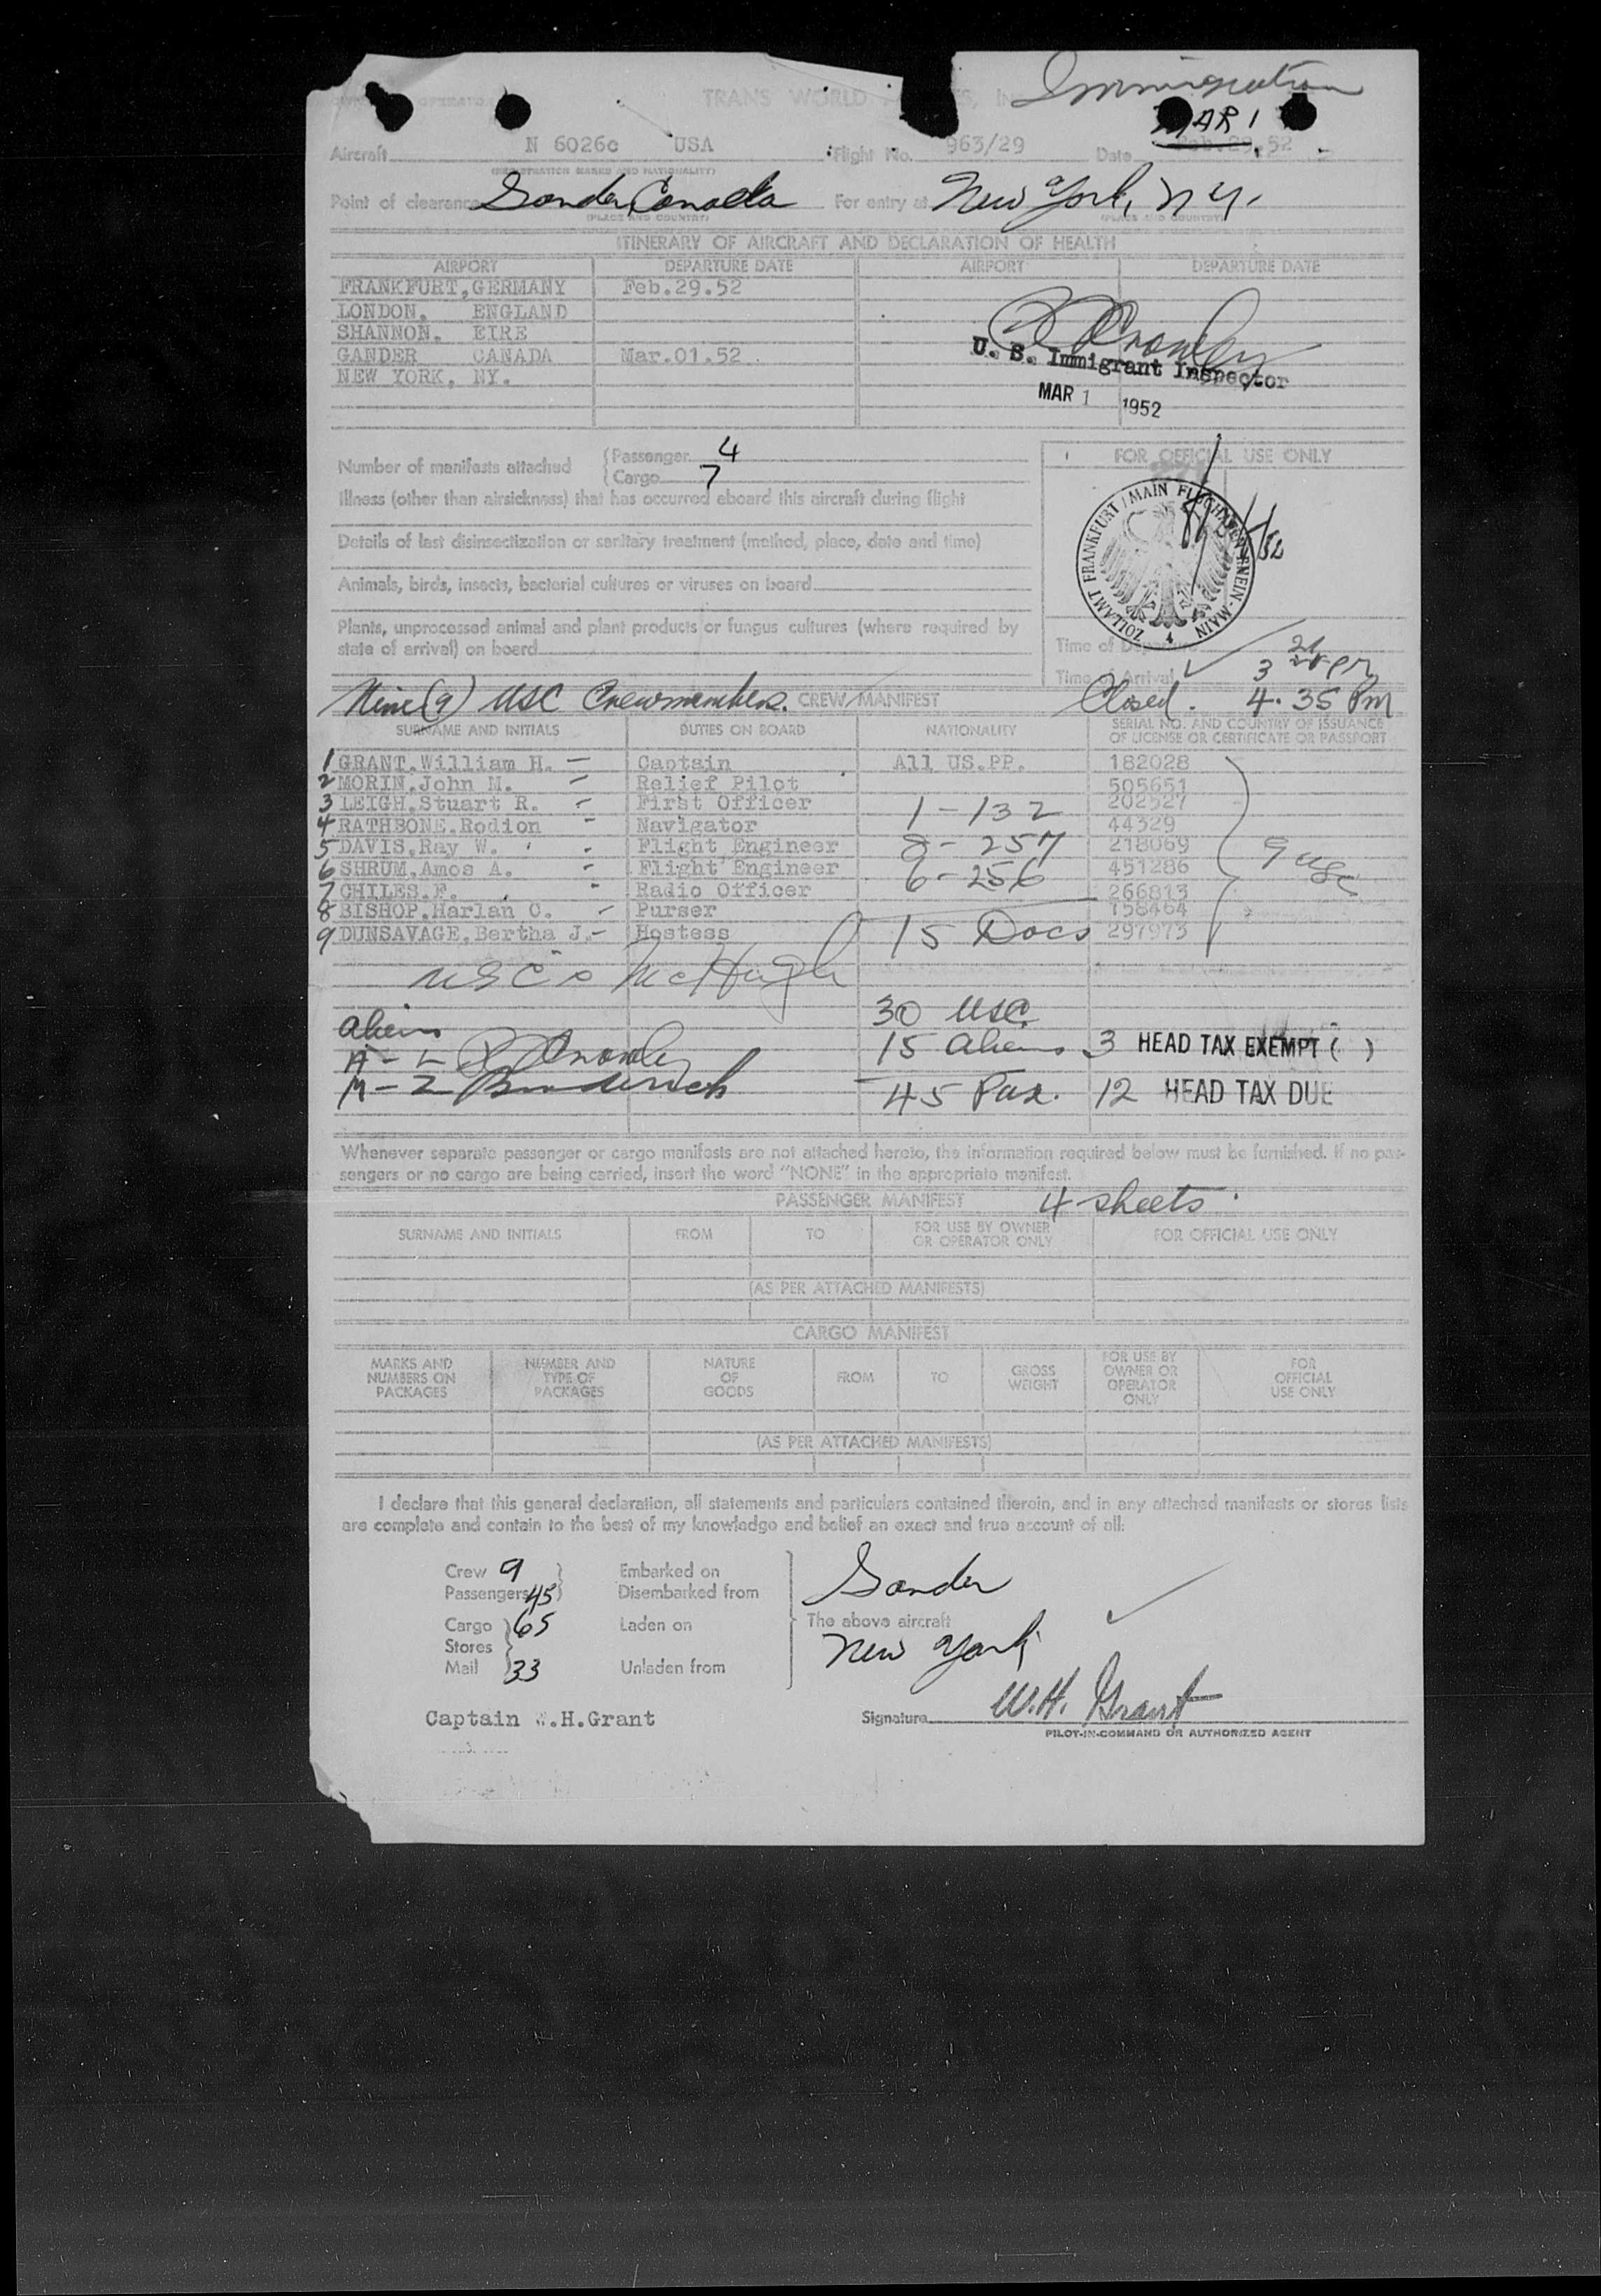 Immigration
TRANS WORLD
MAR 1
Aircraft N 6026c USA Flight No. 963/29 Date Feb.29.52
(REGISTRATION MARKS AND NATIONALITY)
Point of clearance Gander, Canada For entry at New York, N.Y.
(PLACE AND COUNTRY) (PLACE AND COUNTRY)
ITINERARY OF AIRCRAFT AND DECLARATION OF HEALTH
AIRPORT DEPARTURE DATE AIRPORT DEPARTURE DATE
FRANKFURT, GERMANY Feb.29.52
LONDON, ENGLAND
SHANNON, EIRE
GANDER CANADA Mar.01.52
NEW YORK, NY.
U. S. Immigrant Inspector
MAR 1 1952
Number of manifests attached { Passenger 4
{ Cargo 7
FOR OFFICIAL USE ONLY
Illness (other than airsickness) that has occurred aboard this aircraft during flight
Details of last disinsectization or sanitary treatment (method, place, date and time)
ZOLLAMT FRANKFURT/MAIN FLUGHAFEN RHEIN-MAIN
4
Animals, birds, insects, bacterial cultures or viruses on board
Plants, unprocessed animal and plant products or fungus cultures (where required by
state of arrival) on board
Time of Departure
Time of Arrival 3 21 pm
Nine (9) USC Crewmembers. CREW MANIFEST Closed. 4.35 Pm
SURNAME AND INITIALS DUTIES ON BOARD NATIONALITY SERIAL NO. AND COUNTRY OF ISSUANCE
OF LICENSE OR CERTIFICATE OR PASSPORT
1 GRANT.William H. — Captain All US.PP. 182028
2 MORIN.John M. — Relief Pilot 505651
3 LEIGH.Stuart R. - First Officer 1-132 202527
4 RATHBONE.Rodion - Navigator 44329
5 DAVIS.Ray W. - Flight Engineer 8-257 218069
6 SHRUM.Amos A. - Flight Engineer 6-256 451286 9 usc
7 CHILES.F. - Radio Officer 266813
8 BISHOP.Harlan C. - Purser 158464
9 DUNSAVAGE.Bertha J.- Hostess 15 Docs 297973
USC's McHugh
30 USC
Aliens
A - L 15 aliens 3 HEAD TAX EXEMPT ( )
M - Z 45 Pax. 12 HEAD TAX DUE
Whenever separate passenger or cargo manifests are not attached hereto, the information required below must be furnished. If no pas-
sengers or no cargo are being carried, insert the word "NONE" in the appropriate manifest.
PASSENGER MANIFEST 4 sheets
SURNAME AND INITIALS FROM TO FOR USE BY OWNER OR OPERATOR ONLY FOR OFFICIAL USE ONLY
(AS PER ATTACHED MANIFESTS)
CARGO MANIFEST
MARKS AND NUMBERS ON PACKAGES NUMBER AND TYPE OF PACKAGES NATURE OF GOODS FROM TO GROSS WEIGHT FOR USE BY OWNER OR OPERATOR ONLY FOR OFFICIAL USE ONLY
(AS PER ATTACHED MANIFESTS)
I declare that this general declaration, all statements and particulars contained therein, and in any attached manifests or stores lists
are complete and contain to the best of my knowledge and belief an exact and true account of all:
Crew 9 Embarked on Gander
Passengers 45 Disembarked from
Cargo 65 Laden on The above aircraft
Stores New York
Mail 33 Unladen from
Captain W.H.Grant Signature W.H. Grant
PILOT-IN-COMMAND OR AUTHORIZED AGENT